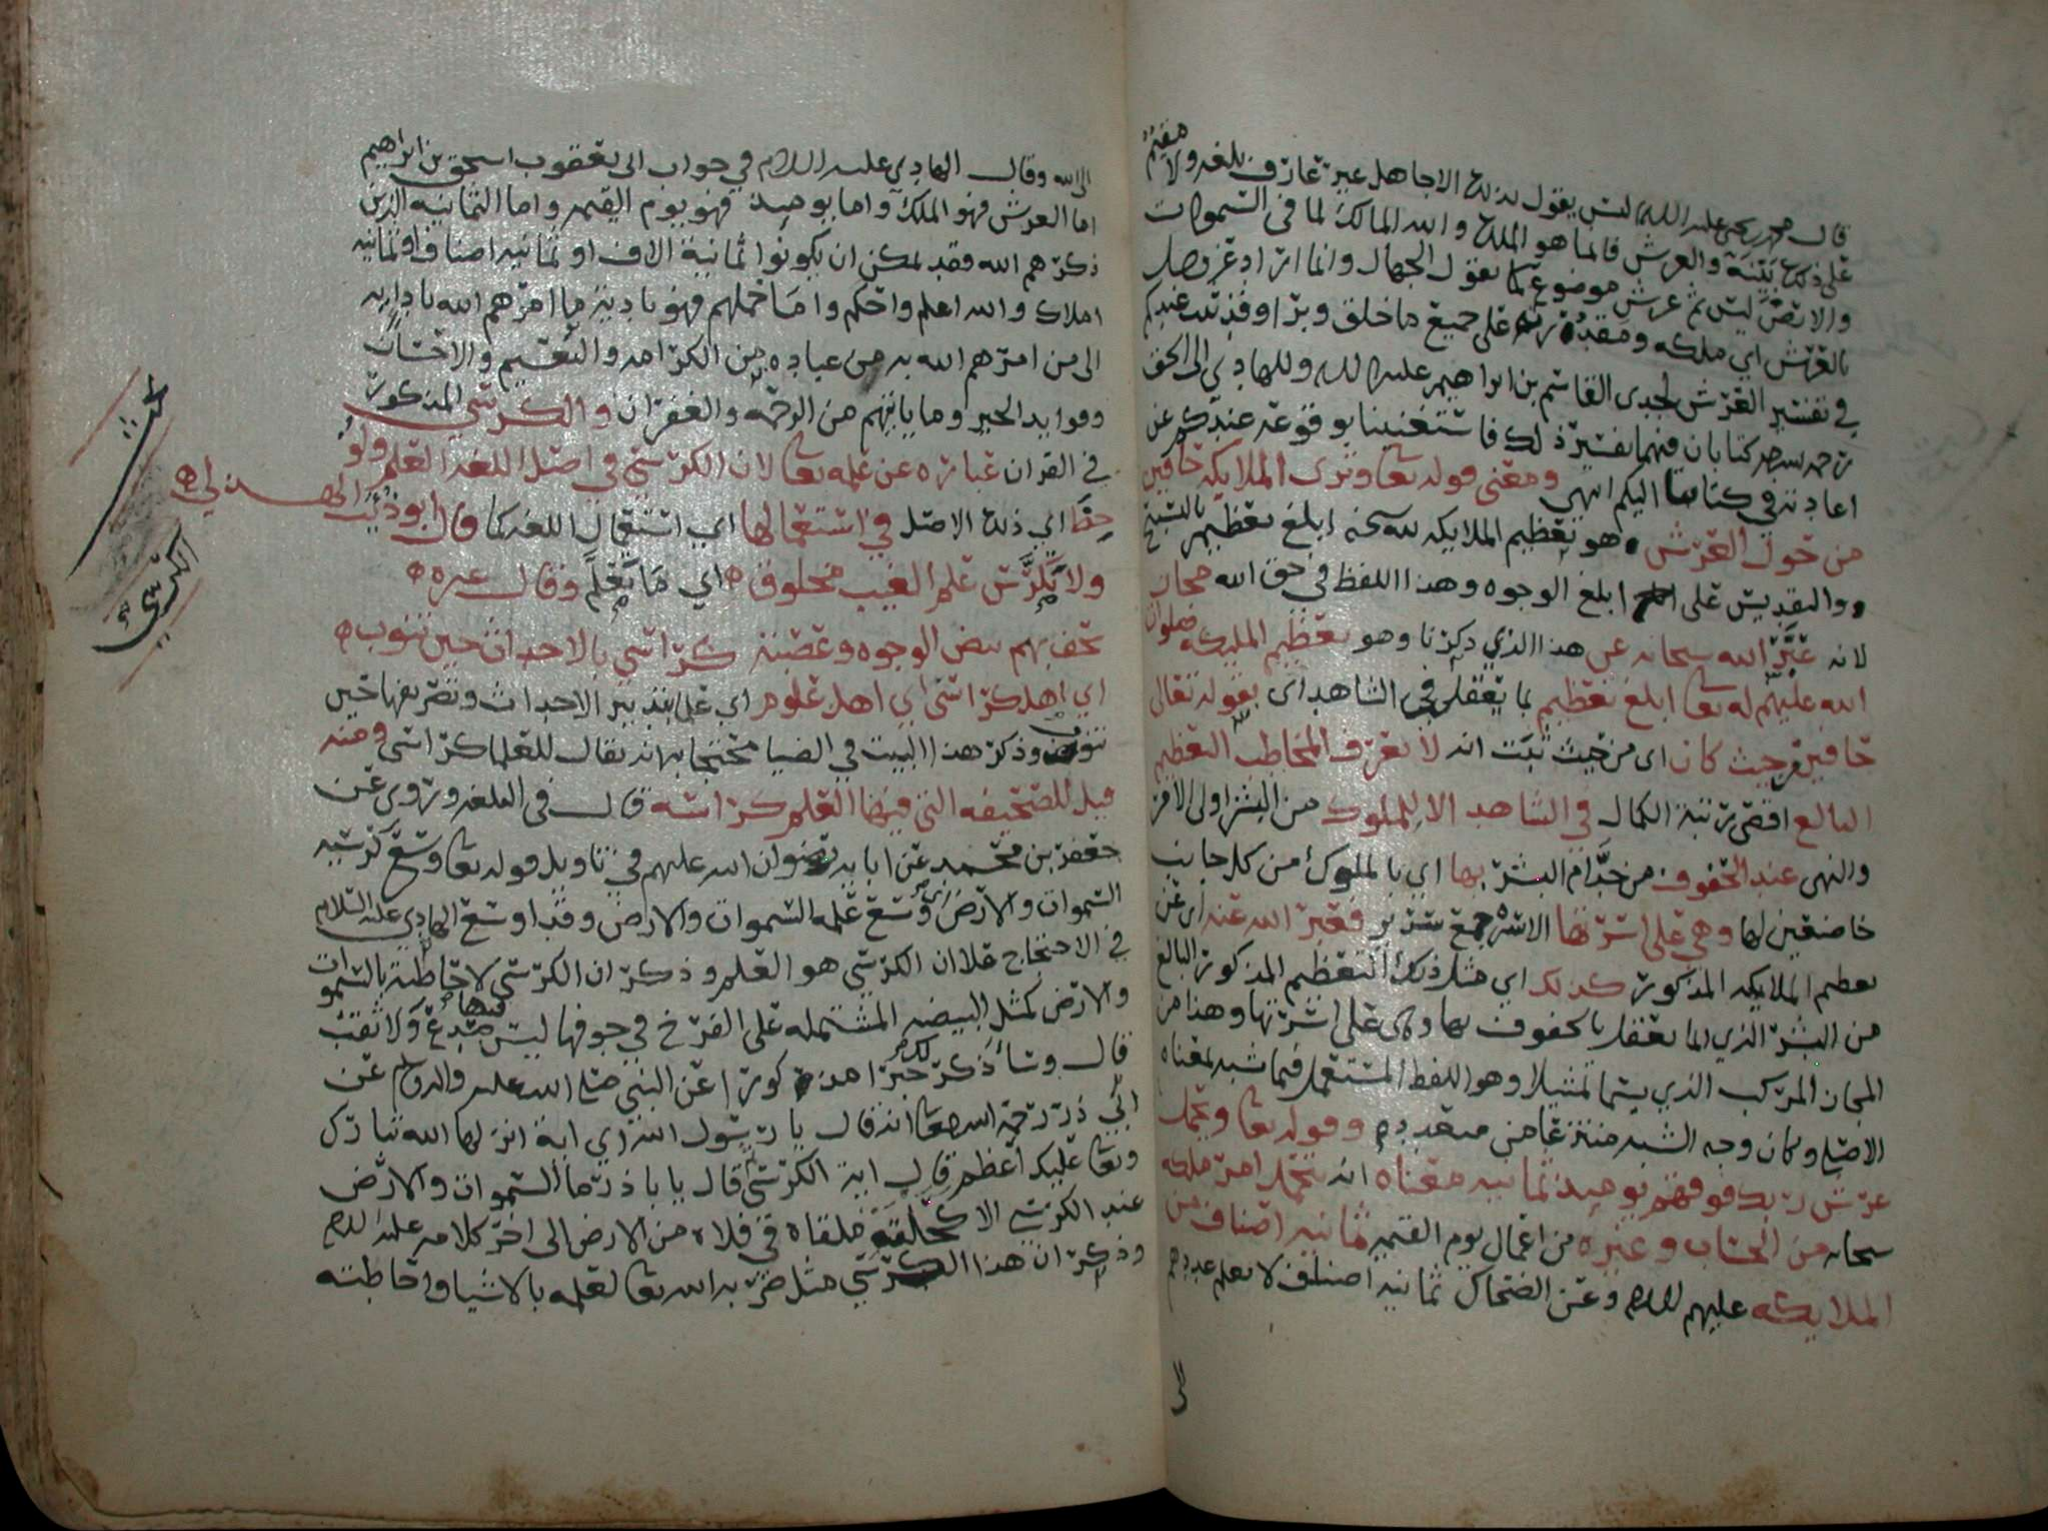 قال محمد بن يحيى عليه السلام ليس يقول بذلك الا جاهل غير عارف بلغه ولا مقيم
على ذلك بينة والعرش فانما هو الملك والله المالك لما في السموات
والارض ليس ثم عرش موضوع كما يقول الجهال وانما اراد عز وجل
بالعرش اي ملكه ومقدرته على جميع ما خلق وبرا وقد ثبت عندكم
في تفسير العرش لجدي القاسم بن ابراهيم عليه السلام وللهادي الى الحق
رحمه الله كتابان فيهما تفسير ذلك فاستغنينا بوقوعه عندكم عن
اعادته في كتابنا اليكم انتهى ومعنى قوله تعا وترى الملايكه حافين
من حول العرش هو تعظيم الملايكه لله سبحنه ابلغ تعظيم بالتسبيح
والتقديس على ابلغ الوجوه وهذا اللفظ في حق الله مجاز
لانه عبر الله سبحانه عن هذا الذي ذكرنا وهو تعظيم المليكه صلوات
الله عليهم له تعا ابلغ تعظيم بما يعقل في الشاهد اي بقوله تعالى
حافين من حيث كان اي من حيث ثبت انه لا يعرف المخاطب التعظيم
البالغ اقصى رتبة الكمال في الشاهد الا للملوك من البشر اولى الامر
والنهي عند الحفوف من خدام البشر بها اي بالملوك من كل جانب
خاضعين لها وهي على اسرتها الاسره جمع سرير فعبر الله عنه اي عن
تعظيم الملايكه المذكور كذلك اي مثل ذلك التعظيم المذكور البالغ
من البشر الذي انما يعقل بالحفوف بها وهي على اسرتها وهذا من
المجاز المركب الذي يسما تمثيلا وهو اللفظ المستعمل فيما شبه بمعناه
الاصلي وكان وجه الشبه منتزعا من متعدد وقوله تعا ويحمل
عرش ربك فوقهم يوميذ ثمانيه معناه انه يتحمل امر ملكه
سبحانه من الحساب وغيره من اعمال يوم القيمه ثمانيه اصناف من
الملايكه عليهم السلام وعن الضحاك ثمانيه اصناف لا يعلم عددهم
الى الله وقال الهادي عليه السلام في جواب ابي يعقوب اسحق بن ابراهيم
اما العرش فهو الملك واما يوميذ فهو يوم القيمه واما الثمانيه الذين
ذكرهم الله فقد يمكن ان يكونوا ثمانية الاف او ثمانيه اصناف او ثمانيه
املاك والله اعلم واحكم واما حملهم فهو تاديتهم ما امرهم الله بادايه
الى من امرهم الله به من عباده من الكرامه والنعيم والاحسان
وفوايد الخير وما ياتيهم من الرحمه والغفران والكرسي المذكور
في القران عباره عن علمه تعا لان الكرسي في اصل اللغه العلم ولو
حظ اي ذلك الاصل في استعمالها اي استعمال اللغه كما قال ابو ذؤيب الهذلي
ولا يكرس علم الغيب مخلوق اي ما يعلم وقال غيره
تحف بهم بيض الوجوه وعصبة كراسي بالاحداث حين تنوب
اي اهل كراسي اي اهل علوم اي على بتدبير الاحداث وتصريفها حين
تنوب وذكر هذا البيت في الضيا محتجا به انه يقال للعلما كراسي ومنه
قيل للصحيفه التي فيها العلم كراسه قال في البلغه وروي عن
جعفر بن محمد عن ابايه رضوان الله عليهم في تاويل قوله تعا وسع كرسيه
السموات والارض اي وسع علمه السموات والارض وقد اوسع الهادي عليه السلام
في الاحتجاج علا ان الكرسي هو العلم وذكر ان الكرسي لاحاطته بالسموات
والارض كمثل البيضه المشتمله على الفرخ في جوفها ليس فيها صدع ولا ثقب
قال وساذكر لك خبرا مذكورا عن النبي صلى الله عليه واله وسلم عن
ابي ذر رحمة الله عليه انه قال يا رسول الله اي اية انزلها الله تبارك
وتعا عليك اعظم قال اية الكرسي قال يا با ذر ما السموات والارض
عند الكرسي الا كحلقة ملقاه في فلاه من الارض الى اخر كلامه عليه السلام
وذكر ان هذا الكرسي مثل ضربه الله تعا لعلمه بالاشيا واحاطته
الكرسي